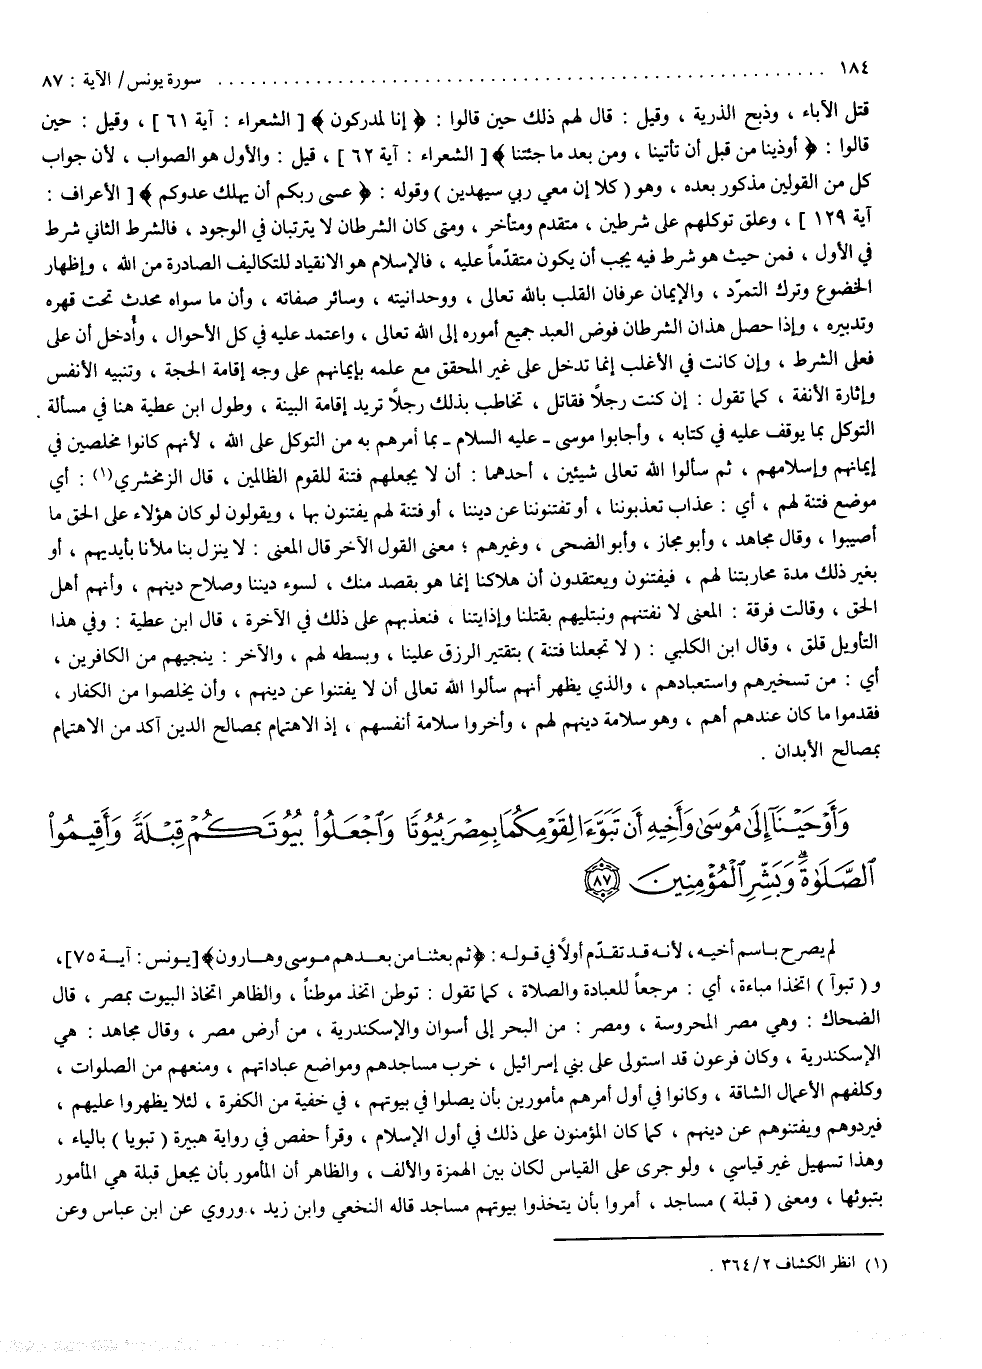 ١٨٤ ............................................................ سورة يونس/ الآية : ٨٧
قتل الآباء ، وذبح الذرية ، وقيل : قال لهم ذلك حين قالوا : ﴿ إنا لمدركون ﴾ [ الشعراء : آية ٦١ ] ، وقيل : حين
قالوا : ﴿ أوذينا من قبل أن تأتينا ، ومن بعد ما جئتنا ﴾ [ الشعراء : آية ٦٢ ] ، قيل : والأول هو الصواب ، لأن جواب
كل من القولين مذكور بعده ، وهو ( كلا إن معي ربي سيهدين ) وقوله : ﴿ عسى ربكم أن يهلك عدوكم ﴾ [ الأعراف :
آية ١٢٩ ] ، وعلق توكلهم على شرطين ، متقدم ومتأخر ، ومتى كان الشرطان لا يترتبان في الوجود ، فالشرط الثاني شرط
في الأول ، فمن حيث هو شرط فيه يجب أن يكون متقدّماً عليه ، فالإسلام هو الانقياد للتكاليف الصادرة من الله ، وإظهار
الخضوع وترك التمرّد ، والإيمان عرفان القلب بالله تعالى ، ووحدانيته ، وسائر صفاته ، وأن ما سواه محدث تحت قهره
وتدبيره ، وإذا حصل هذان الشرطان فوض العبد جميع أموره إلى الله تعالى ، واعتمد عليه في كل الأحوال ، وأُدخل أن على
فعلى الشرط ، وإن كانت في الأغلب إنما تدخل على غير المحقق مع علمه بإيمانهم على وجه إقامة الحجة ، وتنبيه الأنفس
وإثارة الأنفة ، كما تقول : إن كنت رجلاً فقاتل ، تخاطب بذلك رجلاً تريد إقامة البينة ، وطول ابن عطية هنا في مسألة .
التوكل بما يوقف عليه في كتابه ، وأجابوا موسى ـ عليه السلام ـ بما أمرهم به من التوكل على الله ، لأنهم كانوا مخلصين في
إيمانهم وإسلامهم ، ثم سألوا الله تعالى شيئين ، أحدهما : أن لا يجعلهم فتنة للقوم الظالمين ، قال الزمخشري (١) : أي
موضع فتنة لهم ، أي : عذاب تعذبوننا ، أو تفتنوننا عن ديننا ، أو فتنة لهم يفتنون بها ، ويقولون لو كان هؤلاء على الحق ما
أصيبوا ، وقال مجاهد ، وأبو مجاز ، وأبو الضحى ، وغيرهم ؛ معنى القول الآخر قال المعنى : لا ينزل بنا ملأنا بأيديهم ، أو
بغير ذلك مدة محاربتنا لهم ، فيفتنون ويعتقدون أن هلاكنا إنما هو بقصد منك ، لسوء ديننا وصلاح دينهم ، وأنهم أهل
الحق ، وقالت فرقة : المعنى لا نفتنهم ونبتليهم بقتلنا وإذايتنا ، فنعذبهم على ذلك في الآخرة ، قال ابن عطية : وفي هذا
التأويل قلق ، وقال ابن الكلبي : ( لا تجعلنا فتنة ) بتقتير الرزق علينا ، وبسطه لهم ، والآخر : ينجيهم من الكافرين ،
أي : من تسخيرهم واستعبادهم ، والذي يظهر أنهم سألوا الله تعالى أن لا يفتنوا عن دينهم ، وأن يخلصوا من الكفار ،
فقدموا ما كان عندهم أهم ، وهو سلامة دينهم لهم ، وأخروا سلامة أنفسهم ، إذ الاهتمام بمصالح الدين آكد من الاهتمام
بمصالح الأبدان .
وَأَوْحَيْنَآ إِلَىٰ مُوسَىٰ وَأَخِيهِ أَن تَبَوَّءَا لِقَوْمِكُمَا بِمِصْرَ بُيُوتًا وَٱجْعَلُوا۟ بُيُوتَكُمْ قِبْلَةً وَأَقِيمُوا۟
ٱلصَّلَوٰةَ ۗ وَبَشِّرِ ٱلْمُؤْمِنِينَ ٨٧
لم يصرح باسم أخيه ، لأنه قد تقدّم أولاً في قوله : ﴿ثم بعثنا من بعدهم موسى وهارون﴾ [يونس : آية ٧٥] ،
و ( تبوآ ) اتخذا مباءة ، أي : مرجعاً للعبادة والصلاة ، كما تقول : توطن اتخذ موطناً ، والظاهر اتخاذ البيوت بمصر ، قال
الضحاك : وهي مصر المحروسة ، ومصر : من البحر إلى أسوان والإسكندرية ، من أرض مصر ، وقال مجاهد : هي
الإسكندرية ، وكان فرعون قد استولى على بني إسرائيل ، خرب مساجدهم ومواضع عباداتهم ، ومنعهم من الصلوات ،
وكلفهم الأعمال الشاقة ، وكانوا في أول أمرهم مأمورين بأن يصلوا في بيوتهم ، في خفية من الكفرة ، لئلا يظهروا عليهم ،
فيردوهم ويفتنوهم عن دينهم ، كما كان المؤمنون على ذلك في أول الإسلام ، وقرأ حفص في رواية هبيرة ( تبويا ) بالياء ،
وهذا تسهيل غير قياسي ، ولو جرى على القياس لكان بين الهمزة والألف ، والظاهر أن المأمور بأن يجعل قبلة هي المأمور
بتبوئها ، ومعنى ( قبلة ) مساجد ، أمروا بأن يتخذوا بيوتهم مساجد قاله النخعي وابن زيد ، وروي عن ابن عباس وعن
(١) انظر الكشاف ٢/ ٣٦٤ .